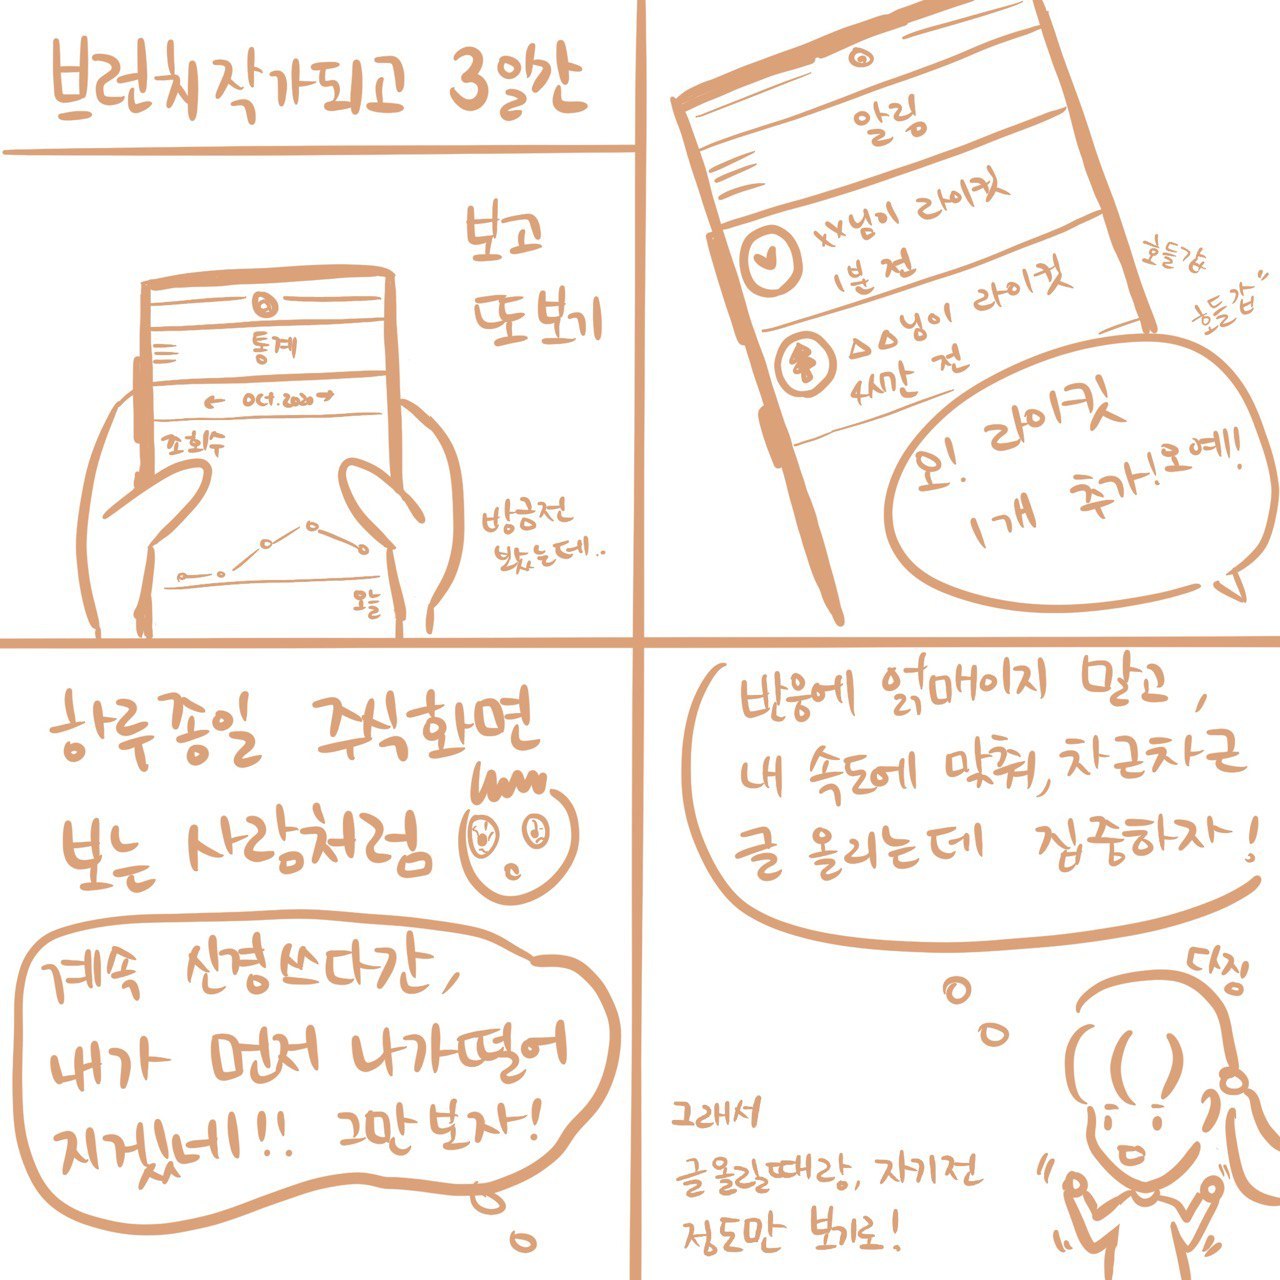 브런치작가되고 3일간
보고
또보기
통계
← Oct.2020 →
조회수
방금전
봤는데..
오늘
알림
xx님이 라이킷
1분 전
△△님이 라이킷
4시간 전
호들갑
호들갑"
오! 라이킷
1개 추가! 오예!
하루종일 주식화면
보는 사람처럼
계속 신경쓰다간,
내가 먼저 나가떨어
지겠네!! 그만보자!
반응에 얽매이지 말고,
내 속도에 맞춰, 차근차근
글 올리는데 집중하자!
다짐
그래서
글올릴때랑, 자기전
정도만 보기로!